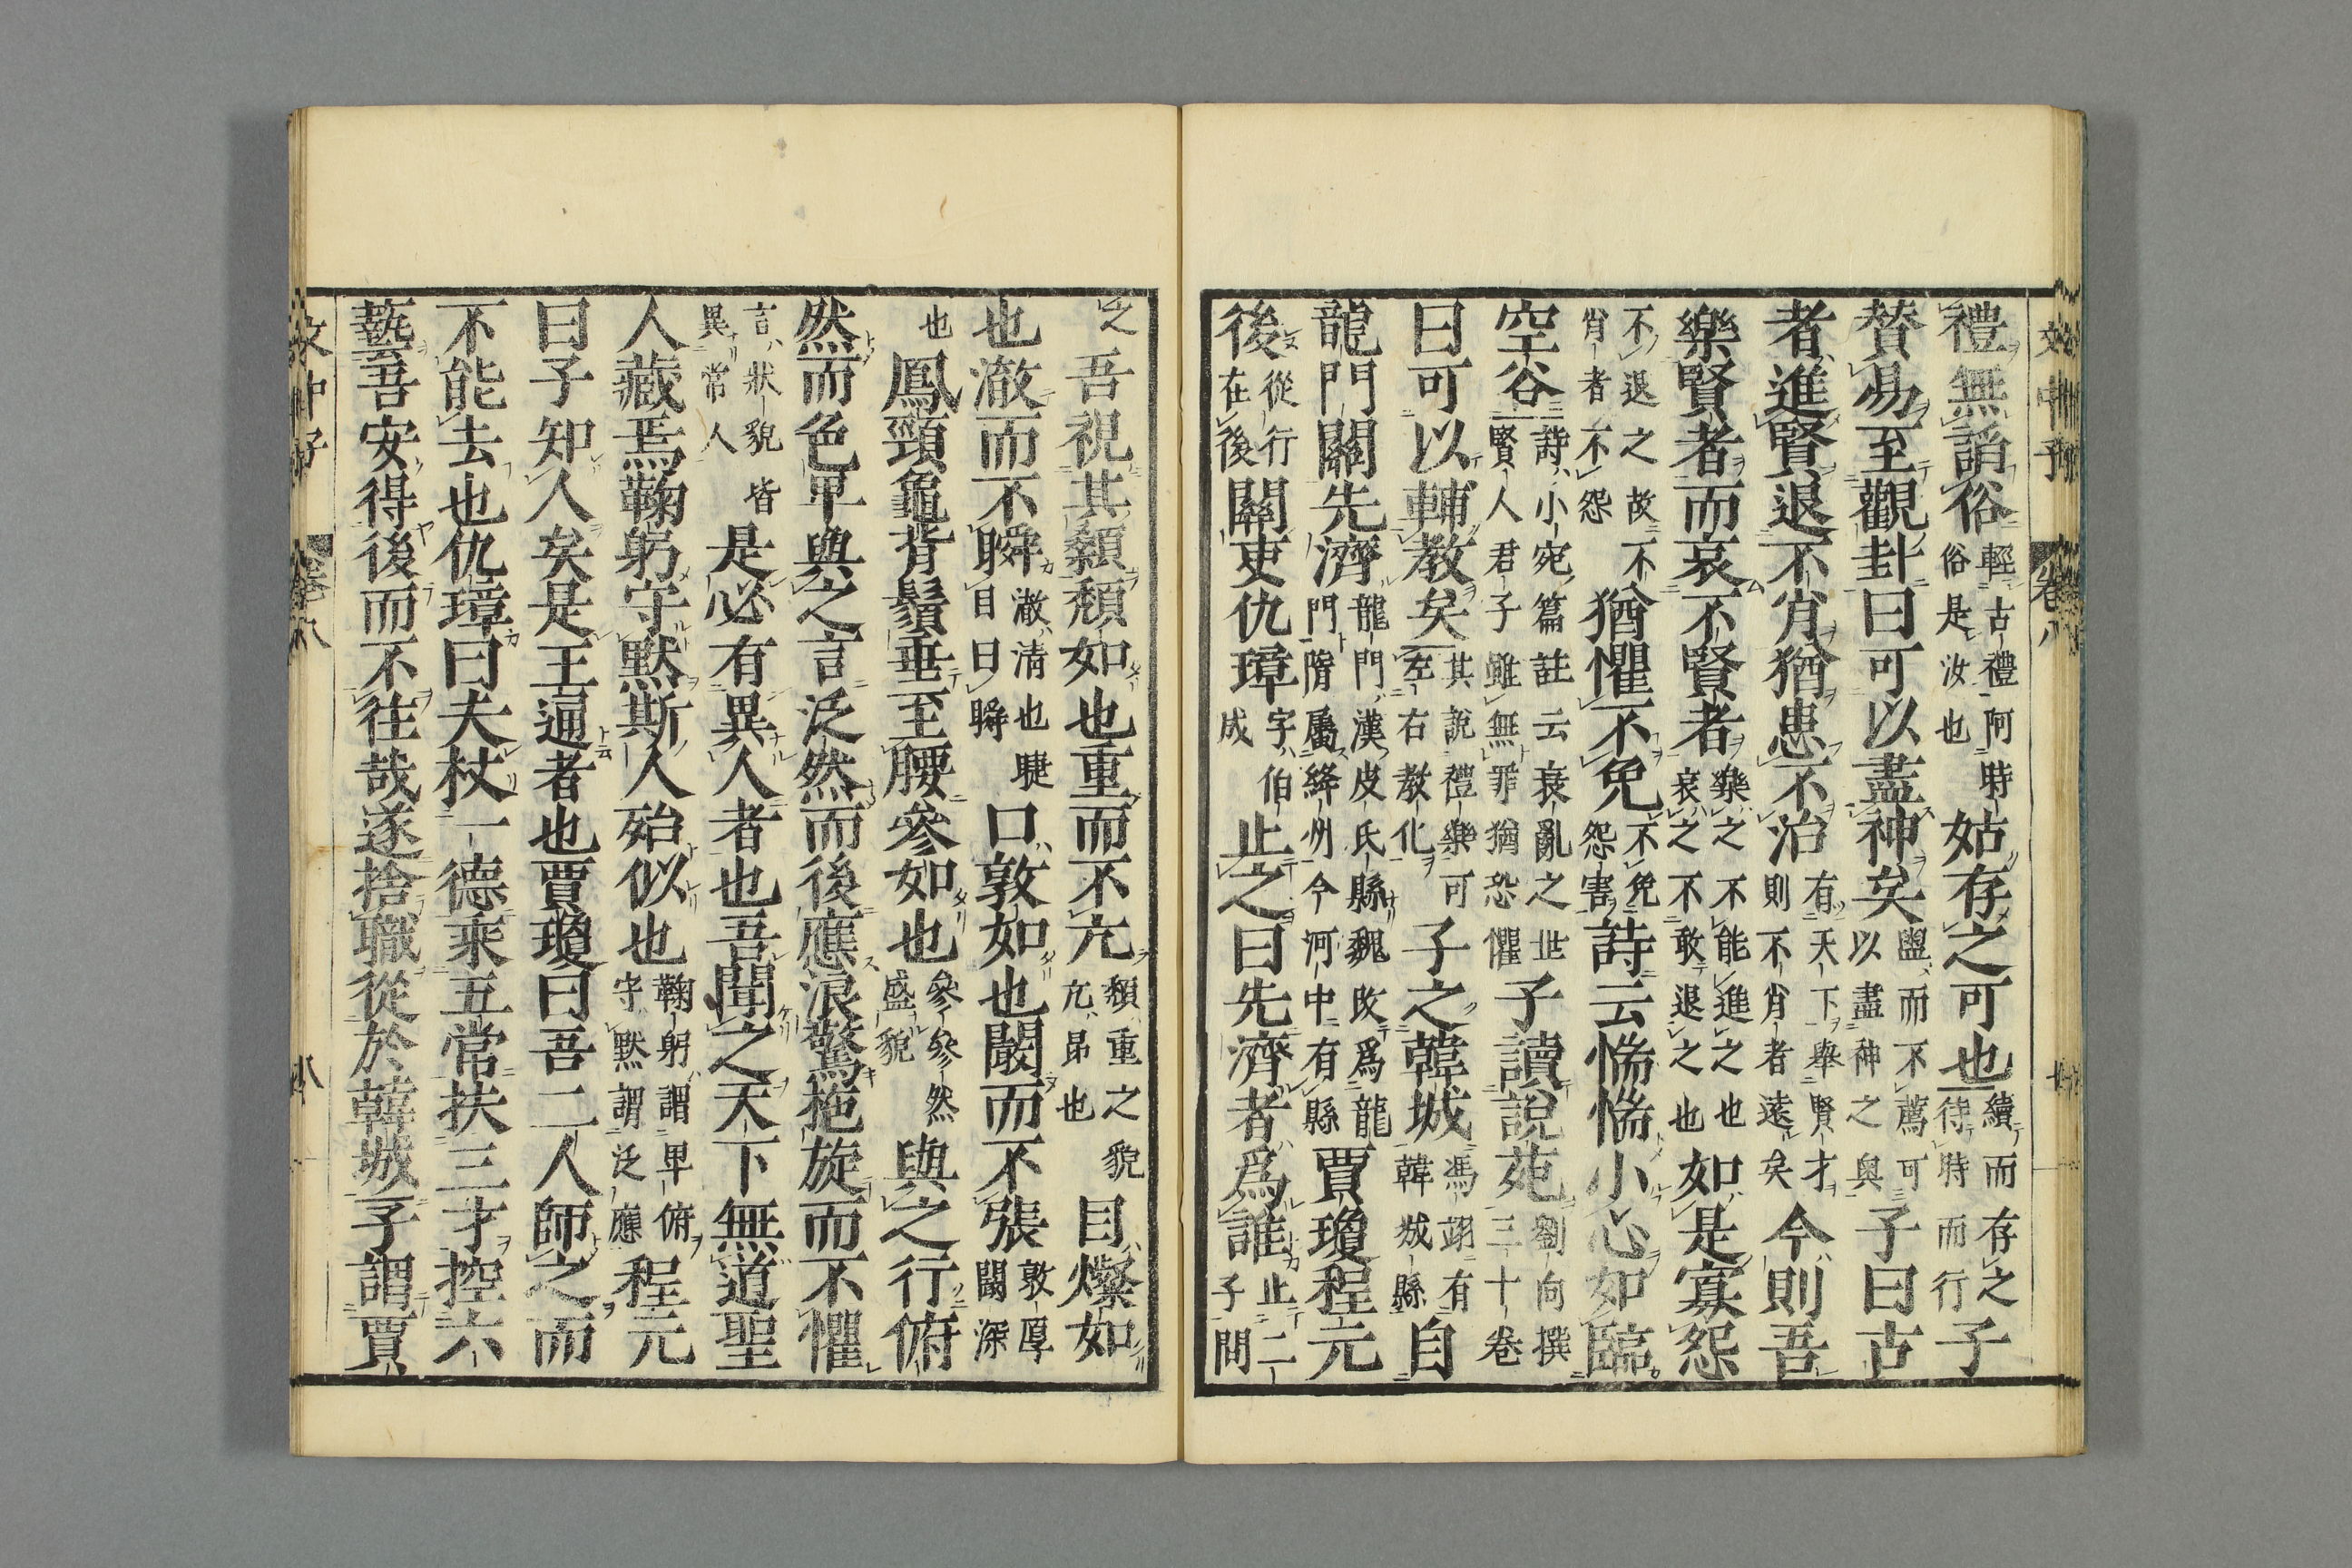 禮無諂俗輕古禮阿時俗是汝也姑存之可也續而存之待時而行子
贊易至觀卦曰可以盡神矣盥而不薦可以盡神之與子曰古
者進賢退不肖猶患不治有天下舉賢才則不肖者遠矣今則吾
樂賢者而哀不賢者樂之不能進之也哀之不敢退之也如是寡怨
不退之故不肖者不怨猶懼不免不免怨害詩云惴惴小心如臨
空谷詩小宛篇註云衰亂之世賢人君子雖無罪猶恐懼子讀說苑劉向撰三十卷
曰可以輔教矣其說禮樂可左右教化子之韓城馮翊有韓城縣自
龍門關先濟龍門漢皮氏縣魏改為龍門隋屬絳州今河中有縣賈瓊程元
後從行在後關吏仇璋字伯成止之曰先濟者為誰止二子問
之吾視其顙頹如也重而不亢頹重之貌亢昂也目燦如
也澈而不瞬澈清也睫目曰瞬口敦如也闊而不張敦厚闊深
也鳳頸龜背鬚垂至腰參如也參參然盛貌與之行俯
然而色卑與之言泛然而後應浪驚拖旋而不懼
言狀貌皆異常人是必有異人者也吾聞之天下無道聖
人藏焉鞠躬守默斯人殆似也鞠躬謂卑俯守默謂泛應程元
曰子知人矣是王通者也賈瓊曰吾二人師之而
不能去也仇璋曰夫杖一德乘五常扶三才控六
藝吾安得後而不往哉遂捨職從於韓城子謂賈
文中子
卷八
文中子
卷八
八